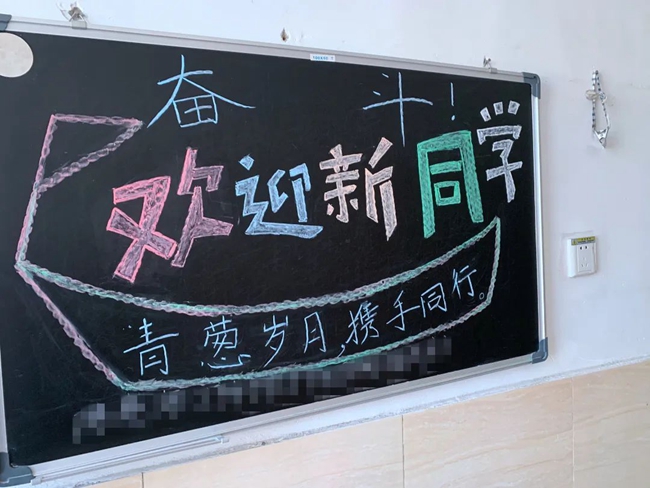 奋斗!
欢迎新同学
青葱岁月,携手同行。